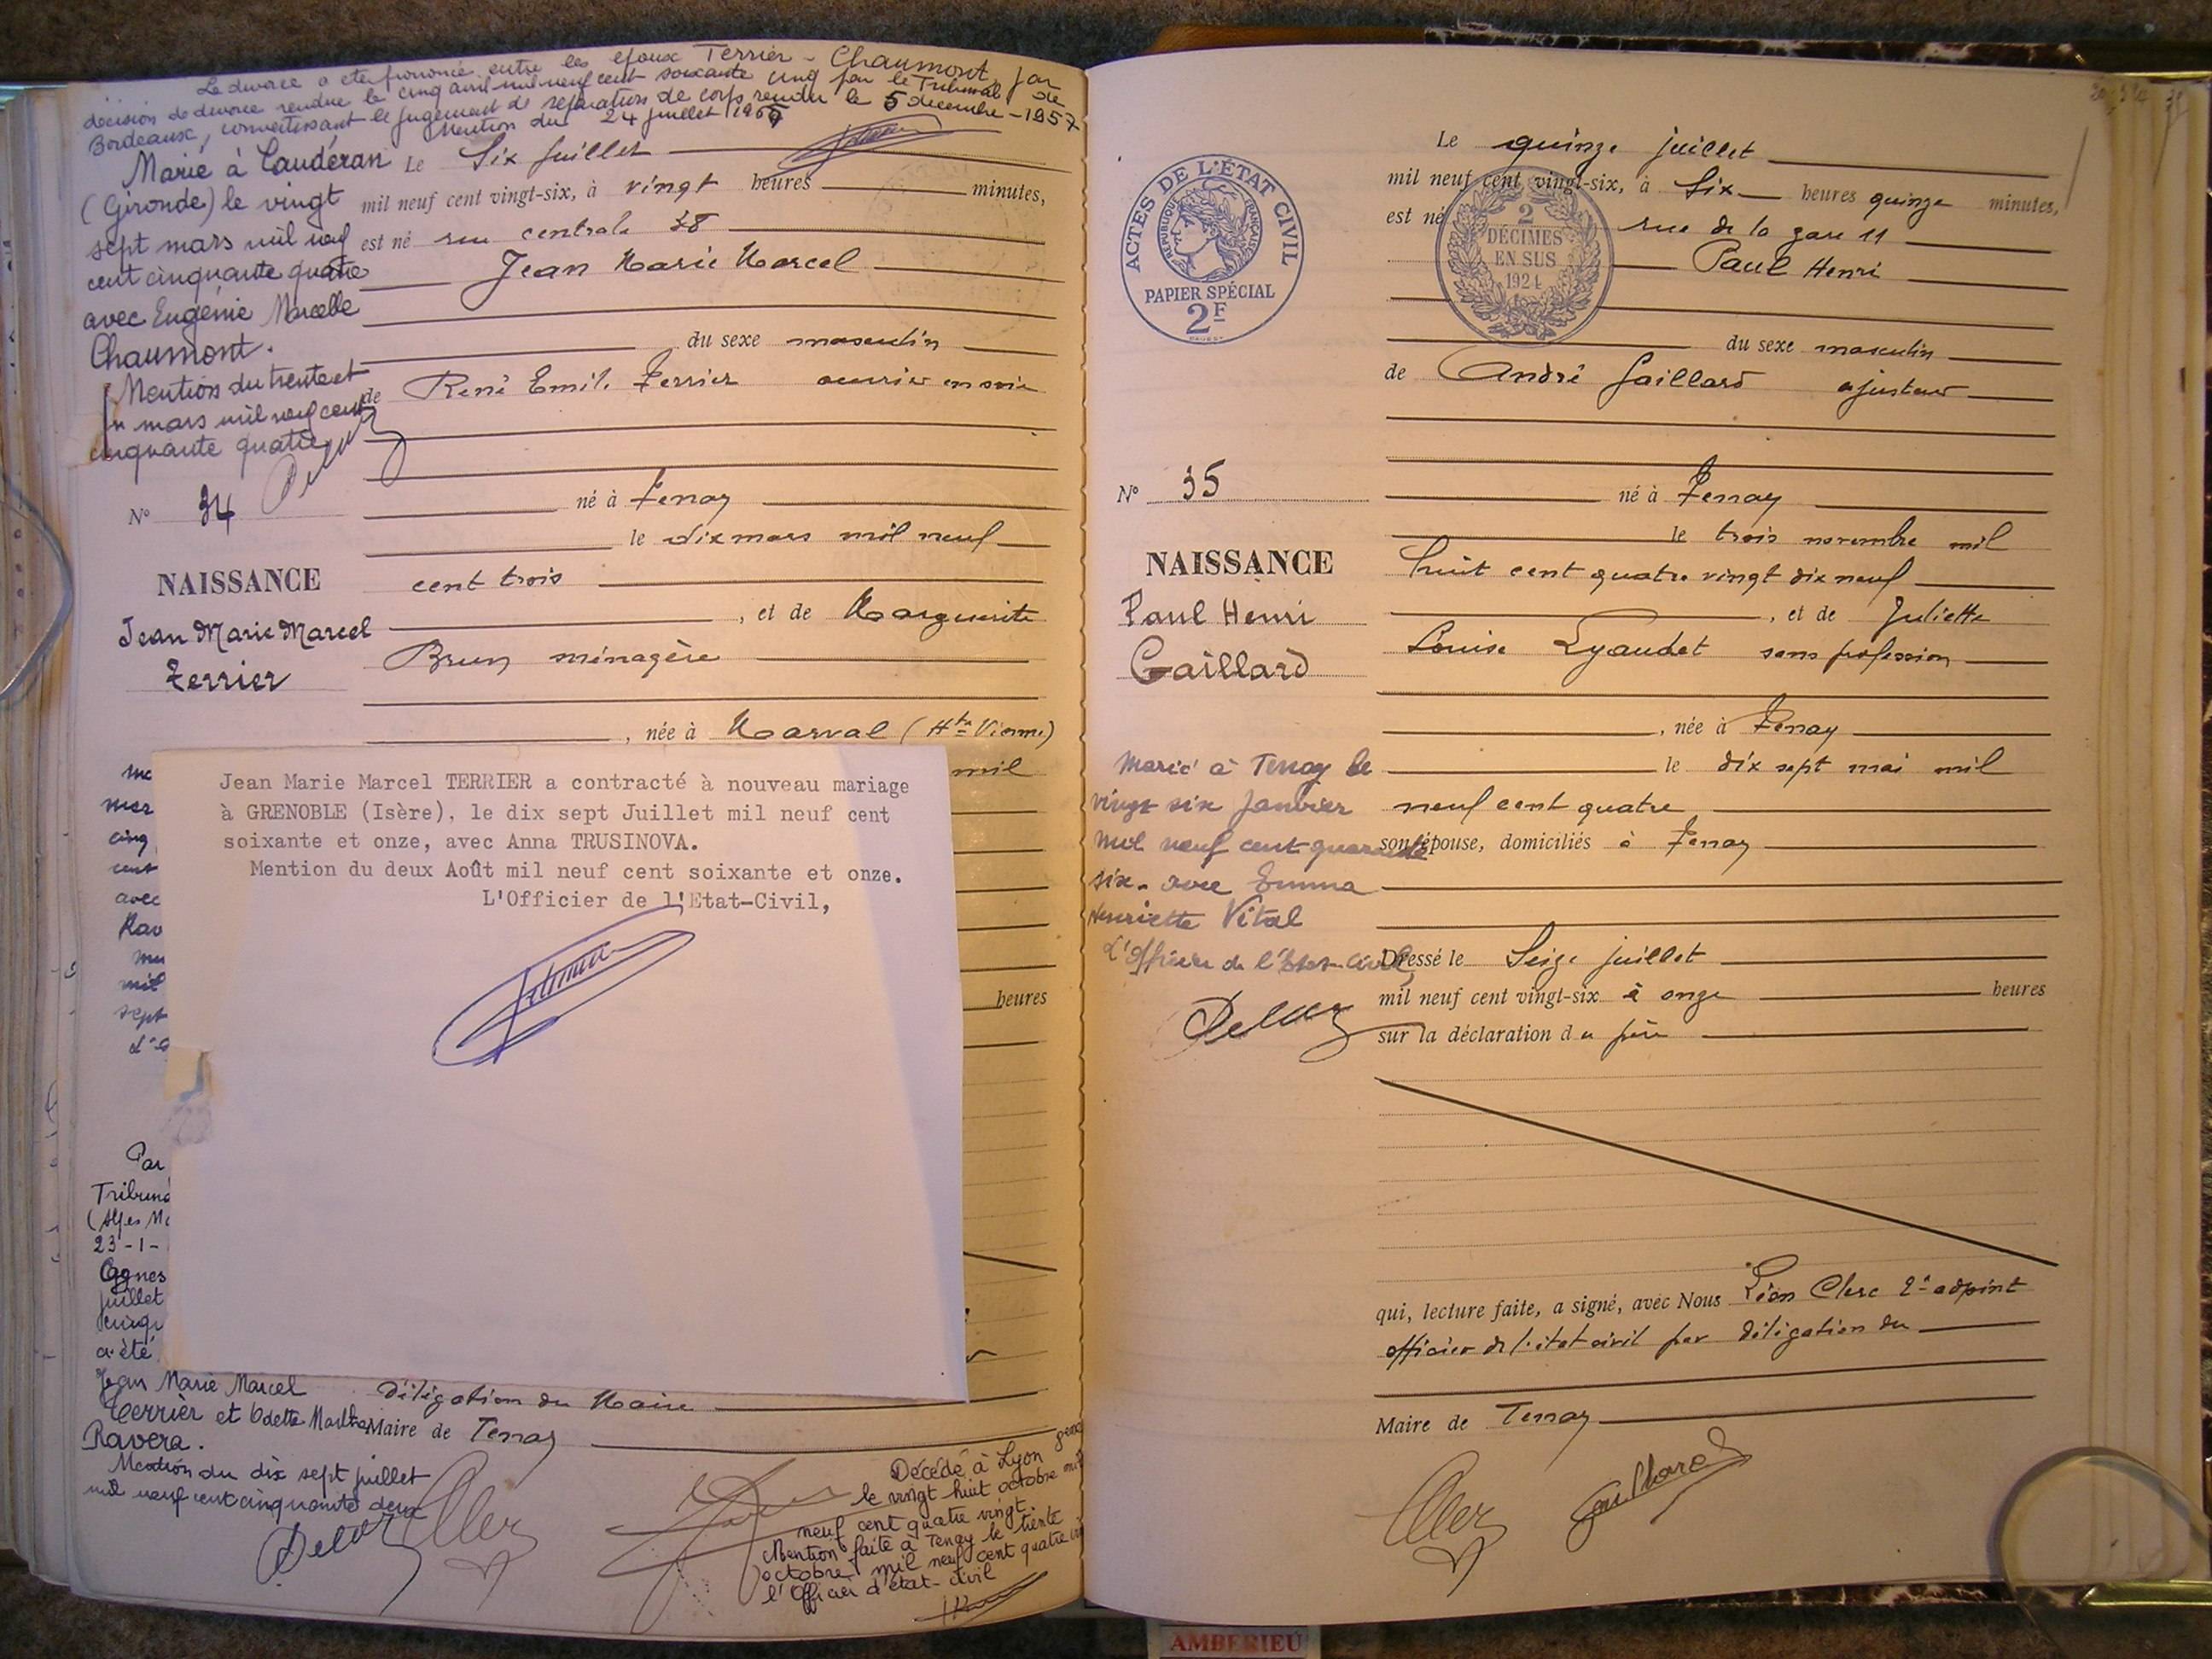 Le divorce a été prononcé entre les époux Terrier - Chaumont par
décision de divorce rendue le cinq avril mil neuf cent soixante cinq par le Tribunal de
Bordeaux, convertissant le jugement de séparation de corps rendu le 5 décembre - 1957
Mention du 24 juillet 1965
Marié à Caudéran
(Gironde) le vingt
sept mars mil neuf
cent cinquante quatre
avec Eugénie Marcelle
Chaumont.
Mention du trente et
un mars mil neuf cent
cinquante quatre
N° 34
NAISSANCE
Jean Marie Marcel
Terrier
Le Six juillet
mil neuf cent vingt-six, à vingt heures minutes,
est né rue centrale 38
Jean Marie Marcel
du sexe masculin
de René Emile Terrier ouvrier en soie
né à Tenay
le dix mars mil neuf
cent trois
, et de Marguerite
Brun ménagère
, née à Marval (Hte Vienne)
mil
Jean Marie Marcel TERRIER a contracté à nouveau mariage
à GRENOBLE (Isère), le dix sept Juillet mil neuf cent
soixante et onze, avec Anna TRUSINOVA.
Mention du deux Août mil neuf cent soixante et onze.
L'Officier de l'Etat-Civil,
cinq
cent
avec
Rav
mil
sept
heures
Par
Tribuna
23-1-
juillet
a été
Jean Marie Marcel
Terrier et Odette Marthe
Ravera.
Mention du dix sept juillet
mil neuf cent cinquante deux
délégation du Maire
Maire de Tenay
Décédé à Lyon
le vingt huit octobre mil
neuf cent quatre vingt.
Mention faite à Tenay le trente
octobre mil neuf cent quatre
l'Officier d'état-civil
ACTES DE L'ÉTAT CIVIL
RÉPUBLIQUE FRANÇAISE
PAPIER SPÉCIAL
2F
2
DÉCIMES
EN SUS
1924
N° 35
NAISSANCE
Paul Henri
Gaillard
Marié à Tenay le
vingt six Janvier
mil neuf cent quarante
six - avec Emma
Henriette Vital
L'Officier de l'Etat-Civil,
Le quinze juillet
mil neuf cent vingt-six, à Six heures quinze minutes,
est né rue de la gare 11
Paul Henri
du sexe masculin
de André Gaillard ajusteur
né à Tenay
le trois novembre mil
huit cent quatre vingt dix neuf
, et de Juliette
Louise Lyaudet sans profession
, née à Tenay
le dix sept mai mil
neuf cent quatre
son épouse, domiciliés à Tenay
Dressé le Seize juillet
mil neuf cent vingt-six à onze heures
sur la déclaration du père
qui, lecture faite, a signé, avec Nous Léon Clerc 2e adjoint
officier de l'état civil par délégation du
Maire de Tenay
AMBERIEU